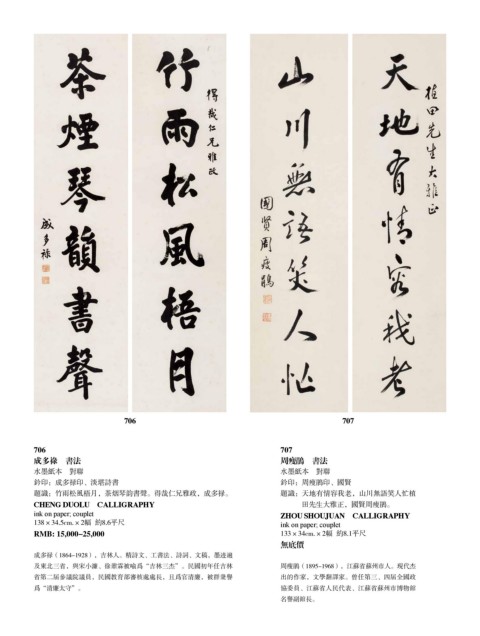 竹雨松風梧月
得哉仁兄雅政
茶煙琴韻書聲
成多祿
天地有情容我老
植田先生大雅正
山川無語笑人忙
國賢周瘦鵑
706
707
706
成多祿 書法
水墨紙本 對聯
鈐印：成多祿印、淡堪詩書
題識：竹雨松風梧月，茶烟琴韵書聲。得哉仁兄雅政，成多祿。
CHENG DUOLU CALLIGRAPHY
ink on paper; couplet
138 × 34.5cm. × 2幅 約8.6平尺
RMB: 15,000–25,000
成多祿（1864-1928），吉林人。精詩文、工書法、詩詞、文稿，墨迹遍
及東北三省，與宋小濂、徐鼐霖被喻爲“吉林三杰”。民國初年任吉林
省第二屆參議院議員，民國教育部審核處處長，且爲官清廉，被群衆譽
爲“清廉太守”。
707
周瘦鵑 書法
水墨紙本 對聯
鈐印：周瘦鵑印、國賢
題識：天地有情容我老，山川無語笑人忙植
田先生大雅正，國賢周瘦鵑。
ZHOU SHOUJUAN CALLIGRAPHY
ink on paper; couplet
133 × 34cm. × 2幅 約8.1平尺
無底價
周瘦鵑（1895-1968），江蘇省蘇州市人。現代杰
出的作家，文學翻譯家。曾任第三、四屆全國政
協委員、江蘇省人民代表、江蘇省蘇州市博物館
名譽副館長。